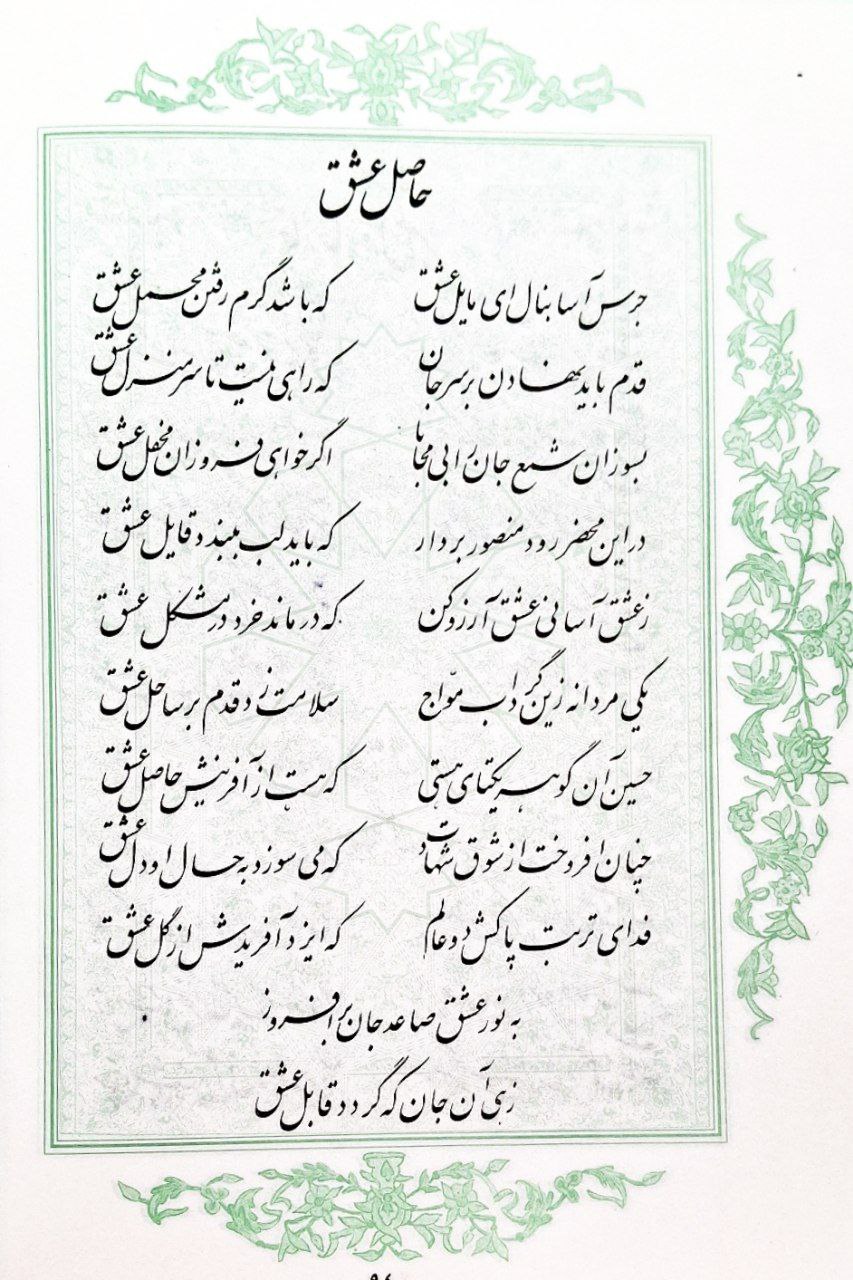 حاصل عشق
جرس آسا بنال ای مایل عشق که باشد گرم رفتن محمل عشق
قدم باید نهادن بر سر جان که راهی نیست تا سر منزل عشق
بسوزان شمع جان را بی محابا اگر خواهی فروزان محفل عشق
در این محضر رود منصور بر دار که باید لب ببندد قایل عشق
ز عشق آسانی عشق آرزو کن که در ماند خرد در مشکل عشق
یکی مردانه زین گرداب موّاج سلامت زد قدم بر ساحل عشق
حسین آن گوهر یکتای هستی که هست از آفرینش حاصل عشق
چنان افروخت از شوق شهادت که می سوزد به حال او دل عشق
فدای تربت پاکش دو عالم که ایزد آفریدش از گل عشق
به نور عشق صاعد جان برافروز
زهی آن جان که گردد قابل عشق